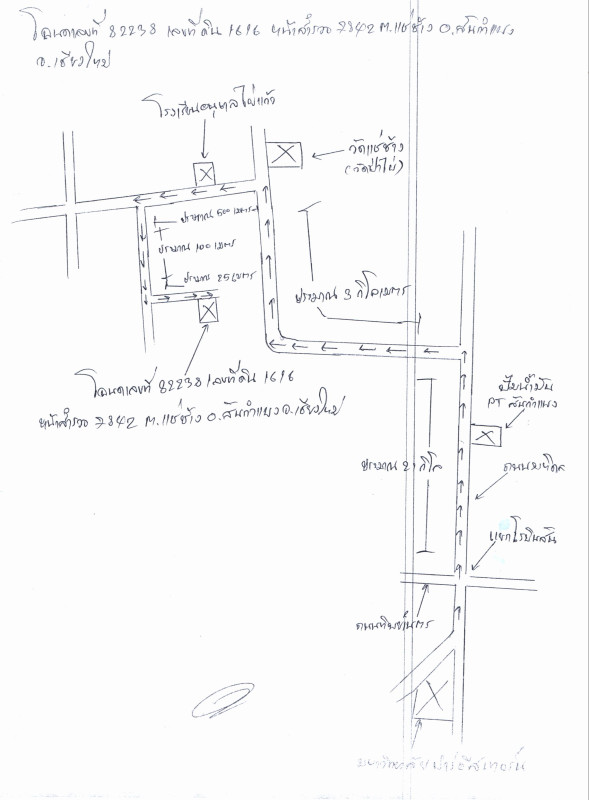 โฉนดเลขที่ 82238 เลขที่ดิน 1616 หน้าสำรวจ 7842 ต.แช่ช้าง อ.สันกำแพง
จ.เชียงใหม่
โรงเรียนอนุบาลไผ่แก้ว
วัดแช่ช้าง
(วัดป่าไผ่)
ประมาณ 500 เมตร
ประมาณ 100 เมตร
ประมาณ 25 เมตร
ประมาณ 3 กิโลเมตร
โฉนดเลขที่ 82238 เลขที่ดิน 1616
หน้าสำรวจ 7842 ต.แช่ช้าง อ.สันกำแพง จ.เชียงใหม่
ปั๊มน้ำมัน
PT สันกำแพง
ประมาณ 2 กิโล
ถนนมหิดล
แยกโรบินสัน
มหาวิทยาลัยฟาร์อีสเทอร์น